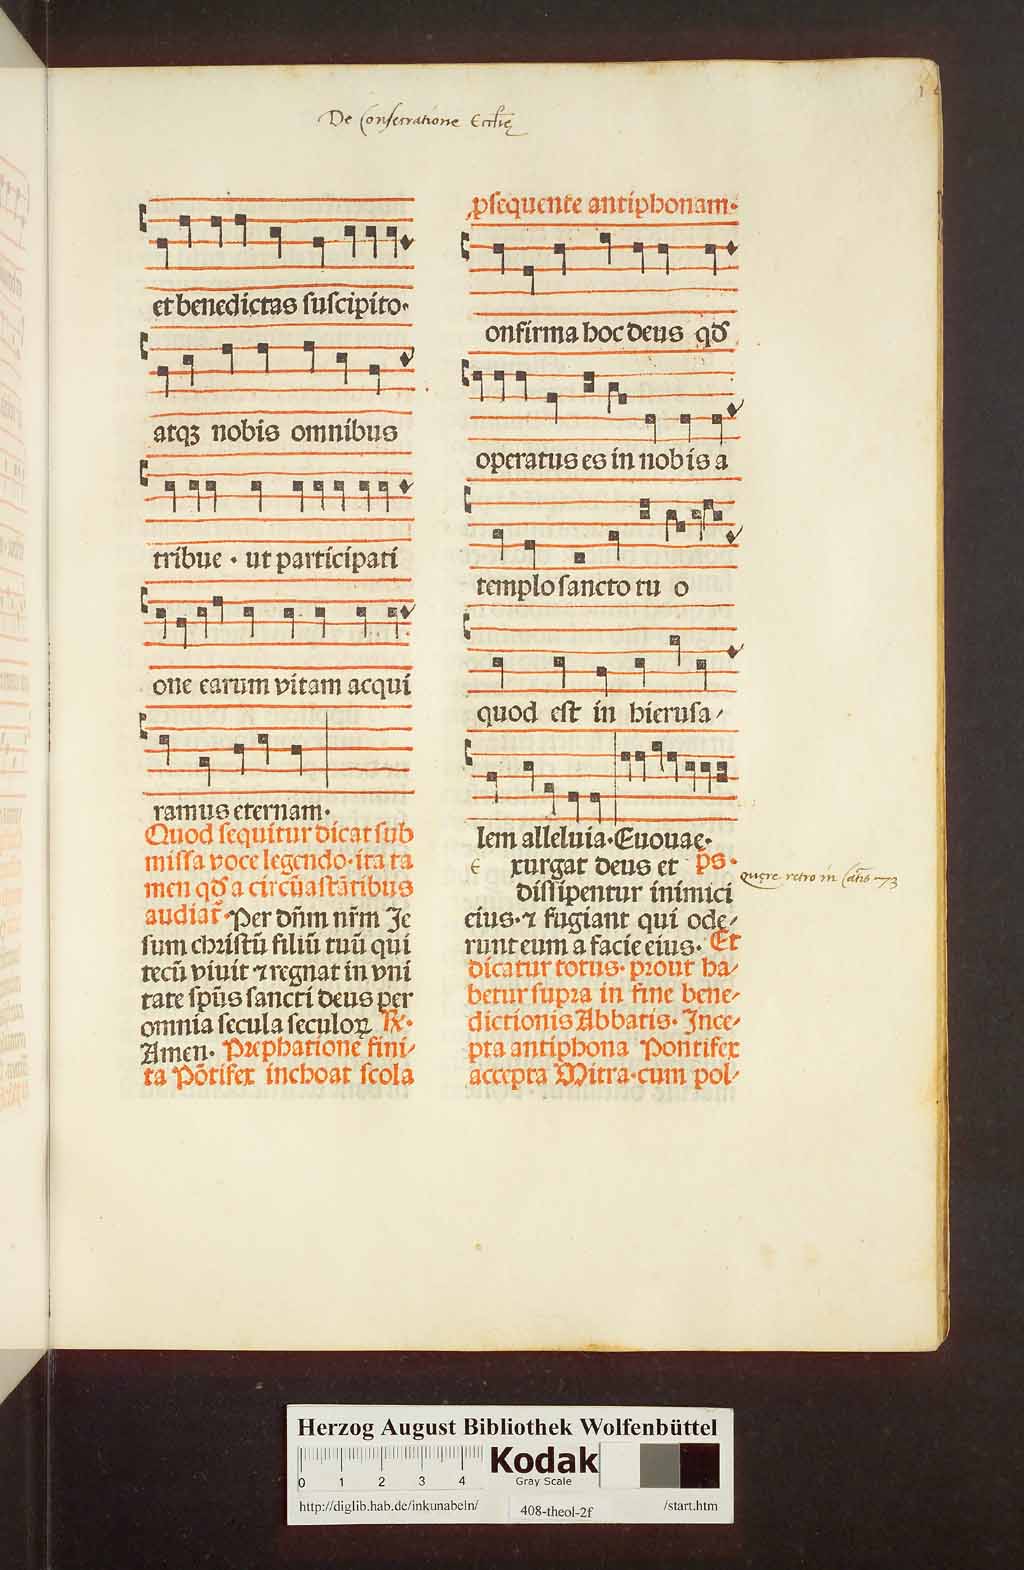 De Consecratione Eccłię
et benedictas suscipito·
atqꝫ nobis omnibus
tribue · ut participati
one earum vitam acqui
ramus eternam·
Quod sequitur dicat sub
missa voce legendo· ita ta
men qđ a circūastātibus
audiaṫ· Per dñm nr̃m Je
sum christū filiū tuū qui
tecū viuit ⁊ regnat in vni
tate spūs sancti deus per
omnia secula seculoꝝ ℞·
Amen· Prephatione fini⸗
ta Põtifex inchoat scola
ꝓsequente antiphonam·
onfirma hoc deus qđ
operatus es in nobis a
templo sancto tu o
quod est in hierusa⸗
lem alleluia· Euouae·
e xurgat deus et ps·
dissipentur inimici
eius· ⁊ fugiant qui ode⸗
runt eum a facie eius· Et
dicatur totus· prout ha⸗
betur supra in fine bene⸗
dictionis Abbatis· Ince⸗
pta antiphona Pontifex
accepta Mitra· cum pol⸗
quęre retro in 73
Herzog August Bibliothek Wolfenbüttel
0 1 2 3 4
Kodak
Gray Scale
http://diglib.hab.de/inkunabeln/ 408-theol-2f /start.htm